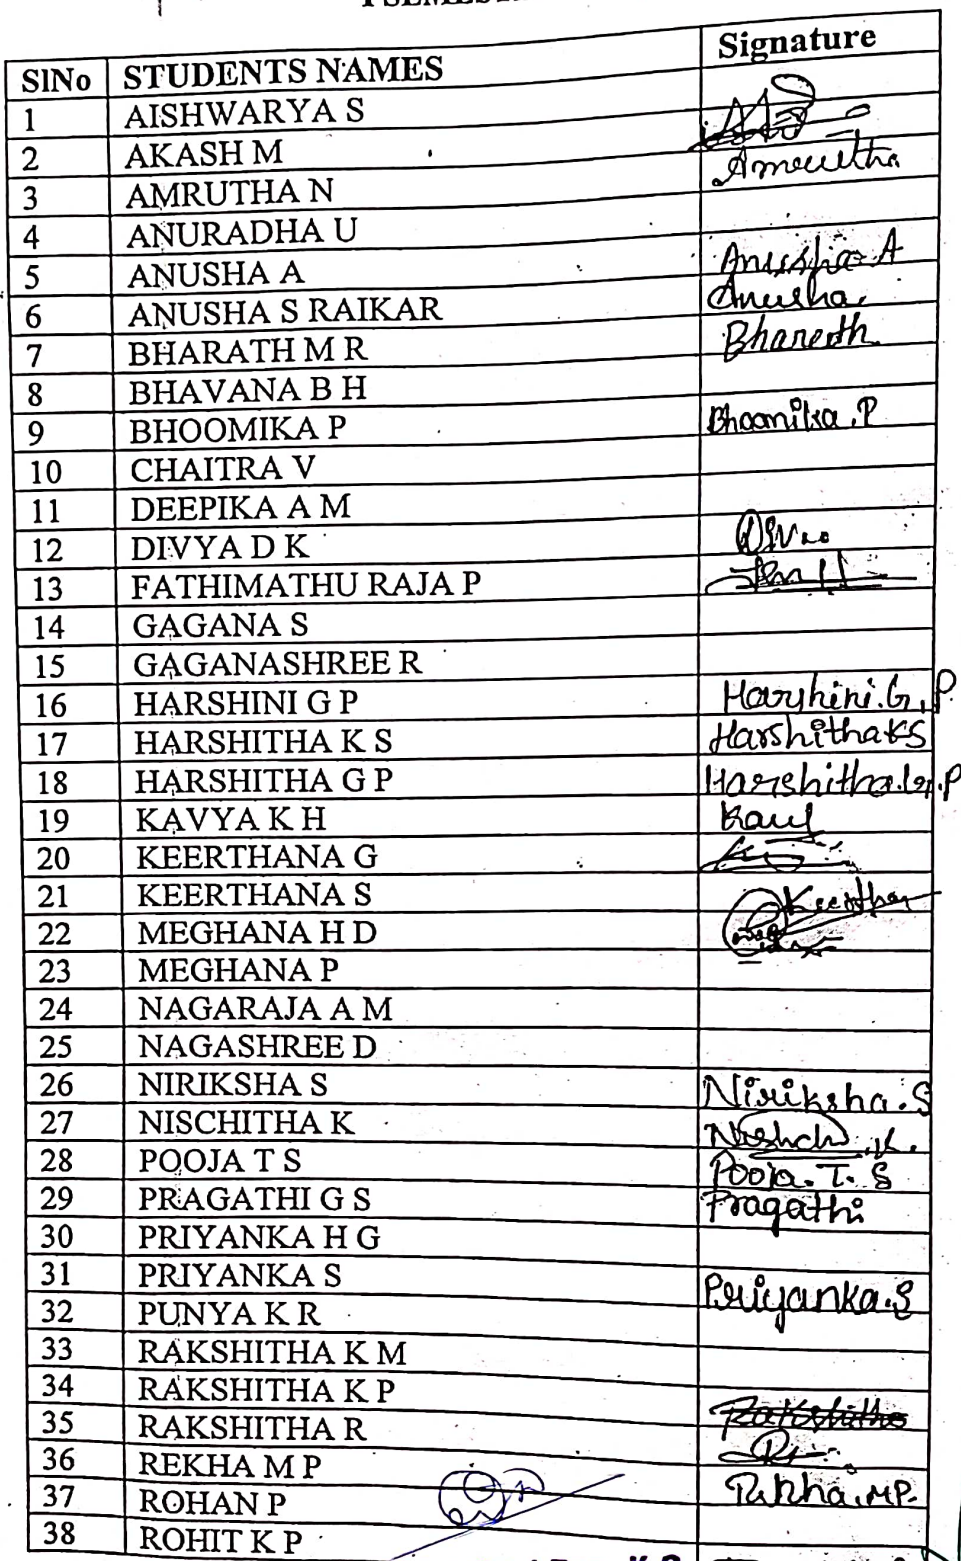 SlNo STUDENTS NAMES Signature
1 AISHWARYA S
2 AKASH M
3 AMRUTHA N Amrutha
4 ANURADHA U
5 ANUSHA A Anusha A
6 ANUSHA S RAIKAR Anusha
7 BHARATH M R Bharath
8 BHAVANA B H
9 BHOOMIKA P Bhoomika.P
10 CHAITRA V
11 DEEPIKA A M
12 DIVYA D K
13 FATHIMATHU RAJA P
14 GAGANA S
15 GAGANASHREE R
16 HARSHINI G P Harshini.G.P
17 HARSHITHA K S Harshitha KS
18 HARSHITHA G P Harshitha.G.P
19 KAVYA K H
20 KEERTHANA G
21 KEERTHANA S
22 MEGHANA H D
23 MEGHANA P
24 NAGARAJA A M
25 NAGASHREE D
26 NIRIKSHA S Niriksha.S
27 NISCHITHA K
28 POOJA T S Pooja.T.S
29 PRAGATHI G S Pragathi
30 PRIYANKA H G
31 PRIYANKA S Priyanka.S
32 PUNYA K R
33 RAKSHITHA K M
34 RAKSHITHA K P
35 RAKSHITHA R
36 REKHA M P Rekha.MP.
37 ROHAN P
38 ROHIT K P